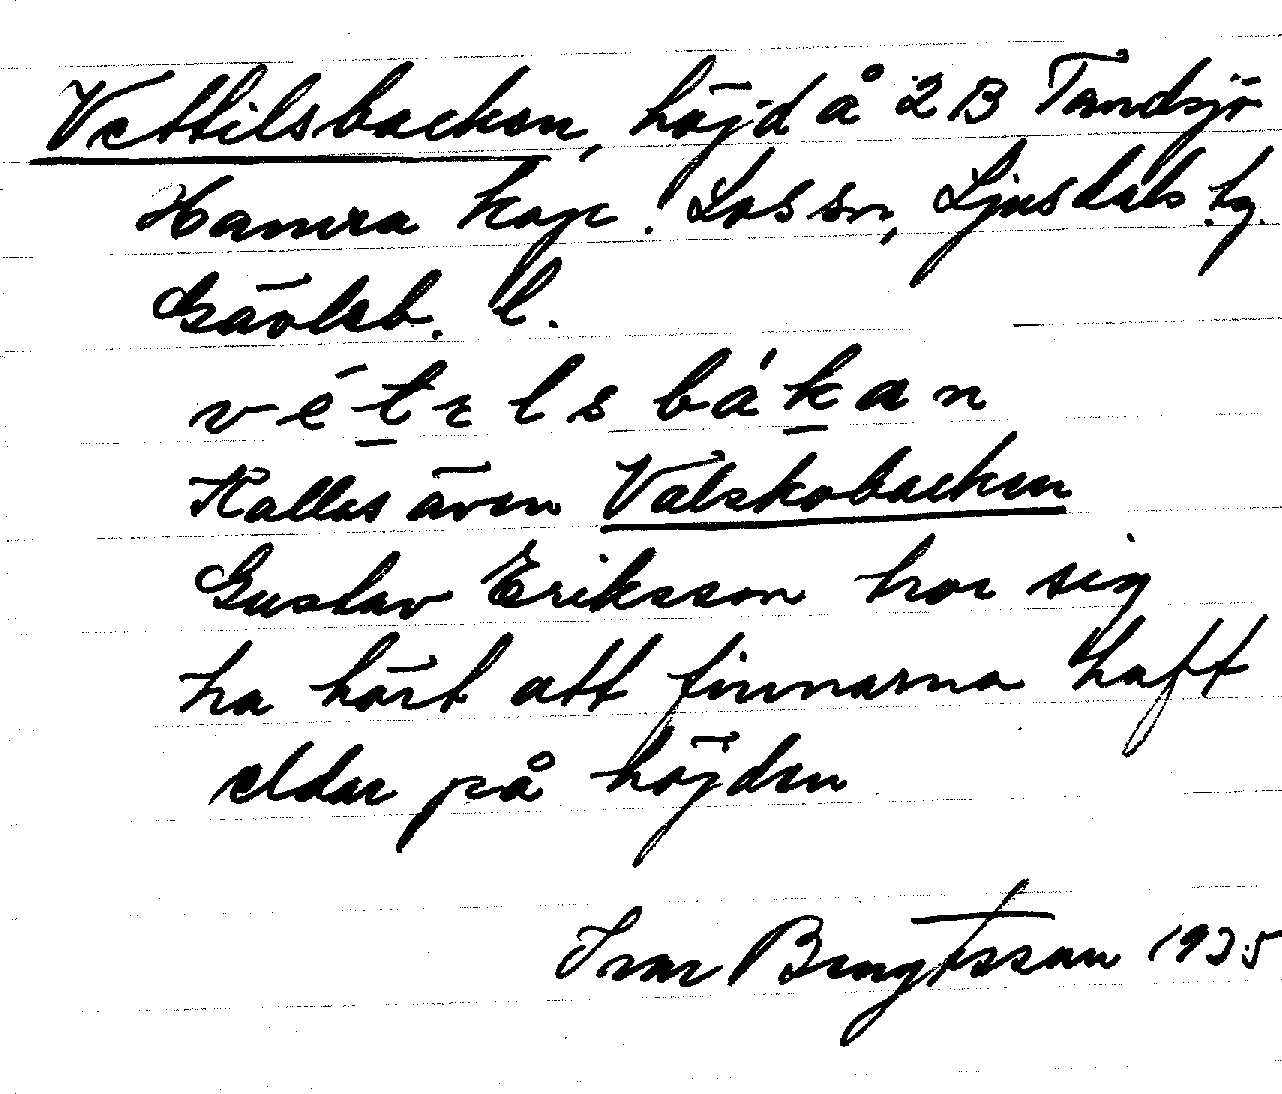 Vettilsbacken, höjd å 2B Tandsjö
Hamra kap. Los sn, Ljusdals tg
Gävleb. l.
vétils bákan
Kallas även Valskobacken
Gustav Eriksson hos sig
ha hört att finnarna haft
eldar på höjden
Ivar Bengtsson 1935